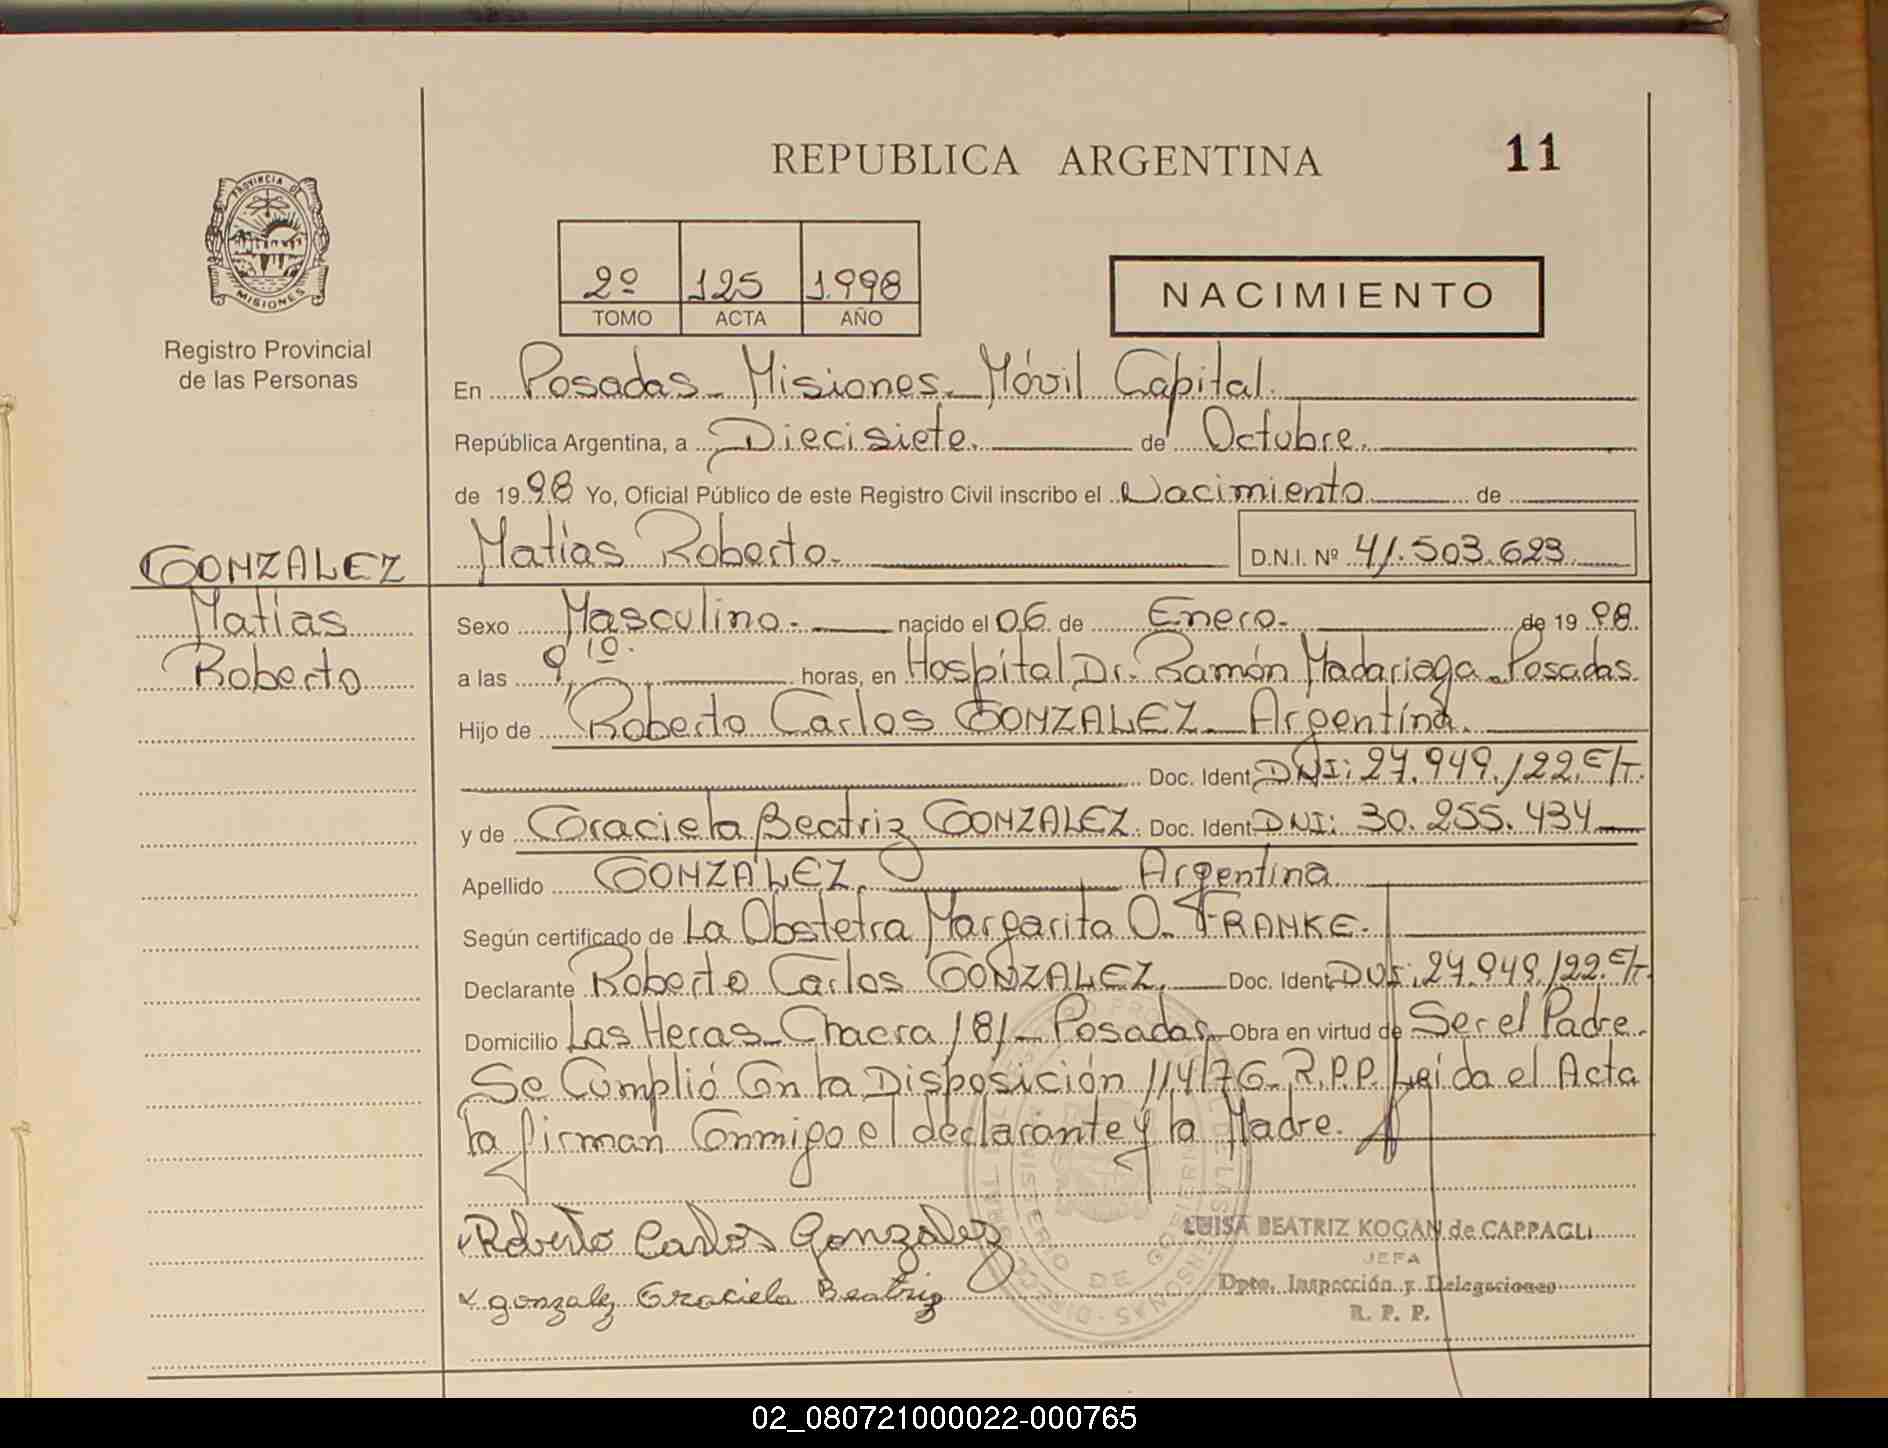 REPUBLICA ARGENTINA
11
PROVINCIA DE
MISIONES
Registro Provincial
de las Personas
2º 125 1.998
TOMO ACTA AÑO
NACIMIENTO
En Posadas - Misiones - Móvil Capital.
República Argentina, a Diecisiete. de Octubre.
de 1998 Yo, Oficial Público de este Registro Civil inscribo el Nacimiento de
Matías Roberto. D.N.I. Nº 41.503.623
GONZALEZ
Matías
Roberto
Sexo Masculino. nacido el 06 de Enero. de 1998.
a las 9,10. horas, en Hospital Dr. Ramón Madariaga - Posadas.
Hijo de Roberto Carlos GONZALEZ - Argentina.
Doc. Ident. DNI: 27.949.122. E/T.
y de Graciela Beatriz GONZALEZ. Doc. Ident. DNI: 30.255.434
Apellido GONZALEZ. Argentina
Según certificado de La Obstetra Margarita O. FRANKE.
Declarante Roberto Carlos GONZALEZ. Doc. Ident. DNI: 27.949.122. E/T.
Domicilio Las Heras - Chacra 181 - Posadas - Obra en virtud de Ser el Padre.
Se Cumplió Con la Disposición 114/76 - R.P.P. Leída el Acta
la firman Conmigo el declarante y la Madre.
Roberto Carlos Gonzalez
gonzalez Graciela Beatriz
LUISA BEATRIZ KOGAN de CAPPAGLI
JEFA
Dpto. Inspección y Delegaciones
R. P. P.
02_080721000022-000765